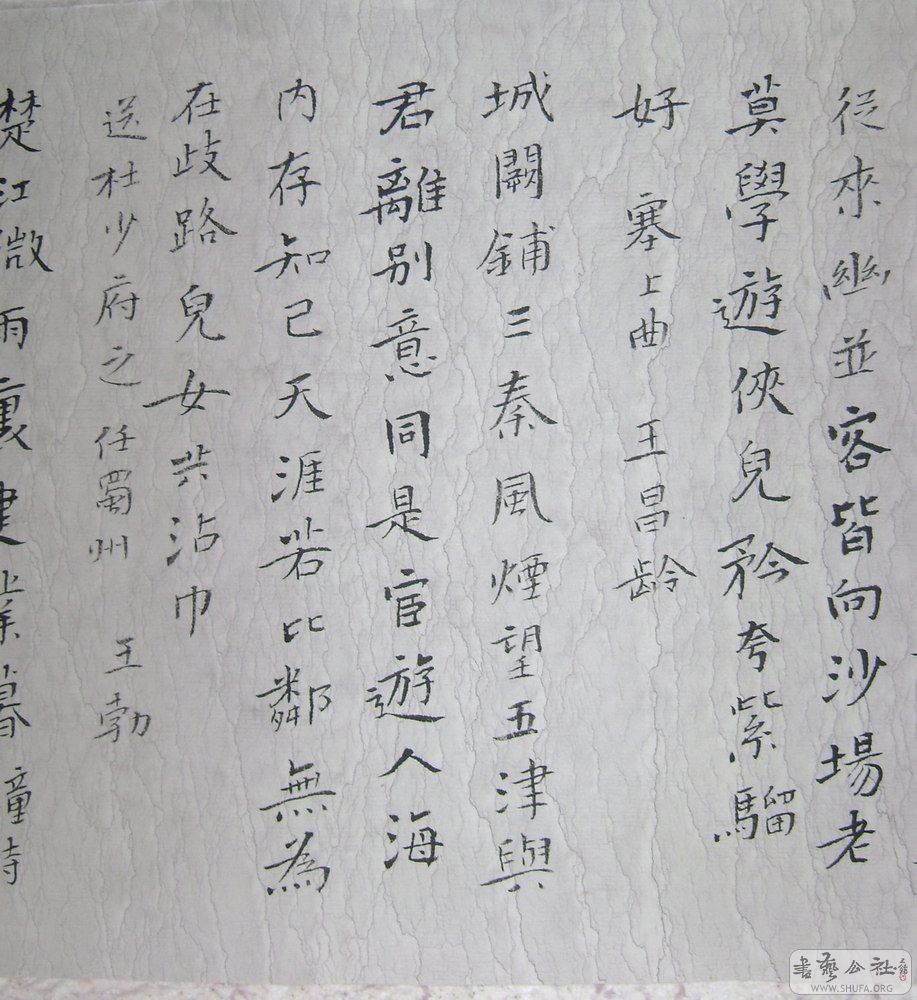 從來幽並容皆向沙場老
莫學遊俠兒矜夸紫騮
好 塞上曲 王昌龄
城闕鋪三秦風煙望五津與
君離別意同是宦遊人海
内存知己天涯若比鄰無為
在歧路兒女共沾巾
送杜少府之任蜀州 王勃
楚江微雨裏建業暮鐘時
書藝公社
WWW.SHUFA.ORG